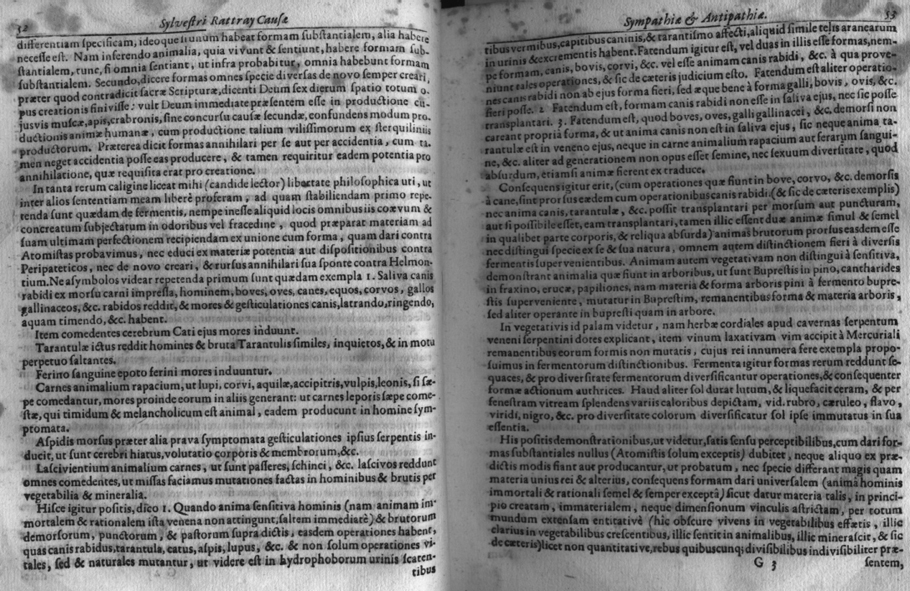 52
Sylvestri Rattray Causæ
differentiam specificam, ideoque unum habeat formam substantialem, alia habere
necesse est. Nam inferendo animalia, quia vivunt & sentiunt, habere formam sub-
stantialem, tunc, si omnia sentiant, ut infra probabitur, omnia habebunt formam
substantialem. Secundo, dicere formas omnes specie diversas de novo semper creari,
præter quod contradicit sacræ Scripturæ, dicenti Deum sex dierum spatio totum o-
pus creationis finivisse: vult Deum immediate præsentem esse in productione cu-
jusvis muscæ, apis, crabronis, sine concursu causæ secundæ, confundens modum pro-
ductionis animæ humanæ, cum productione talium vilissimorum ex sterquiliniis
productorum. Præterea dicit formas annihilari per se aut per accidentia, cum ta-
men neget accidentia posse eas producere, & tamen requiritur eadem potentia pro
annihilatione, quæ requisita erat pro creatione.
In tanta rerum caligine liceat mihi (candide lector) libertate philosophica uti, ut
inter alios sententiam meam liberè proferam, ad quam stabiliendam primo repe-
tenda sunt quædam de fermentis, nempe inesse aliquid locis omnibus iis coævum &
concreatum subjectatum in odoribus vel fracedine, quod præparat materiam ad
suam ultimam perfectionem recipiendam ex unione cum forma, quam dari contra
Atomistas probavimus, nec educi ex materiæ potentia aut dispositionibus contra
Peripateticos, nec de novo creari, & rursus annihilari sua sponte contra Helmon-
tium. Ne asymbolos videar repetenda primum sunt quædam exempla 1. Saliva canis
rabidi ex morsu carni impressa, hominem, boves, oves, canes, equos, corvos, gallos
gallinaceos, &c. rabidos reddit, & mores & gesticulationes canis, latrando, ringendo,
aquam timendo, &c. habent.
Item comedentes cerebrum Cati ejus mores induunt.
Tarantulæ ictus reddit homines & bruta Tarantulis similes, inquietos, & in motu
perpetuo saltantes.
Ferino sanguine epoto ferini mores induuntur.
Carnes animalium rapacium, ut lupi, corvi, aquilæ, accipitris, vulpis, leonis, si sæ-
pe comedantur, mores proinde eorum in aliis generant: ut carnes leporis sæpe come-
stæ, qui timidum & melancholicum est animal, eadem producunt in homine sym-
ptomata.
Aspidis morsus præter alia prava symptomata gesticulationes ipsius serpentis in-
ducit, ut sunt cerebri hiatus, volutatio corporis & membrorum, &c.
Lascivientium animalium carnes, ut sunt passeres, schinci, &c. lascivos reddunt
omnes comedentes, ut missas faciamus mutationes factas in hominibus & brutis per
vegetabilia & mineralia.
Hisce igitur positis, dico 1. Quando anima sensitiva hominis (nam animam im-
mortalem & rationalem ista venena non attingunt, saltem immediatè) & brutorum
demorsorum, punctorum, & pastorum supra dictis, easdem operationes habent,
quas canis rabidus, tarantula, catus, aspis, lupus, &c. & non solum operationes vi-
tales, sed & naturales mutantur, ut videre est in hydrophoborum urinis scaten-
tibus
Sympathiæ & Antipathiæ.
53
tibus vermibus, capitibus caninis, & tarantismo affecti, aliquid simile telis aranearum
in urinis & excrementis habent. Fatendum igitur est, vel duas in illis esse formas, nem-
pe formam, canis, bovis, corvi, &c. vel esse animam canis rabidi, &c. à qua prove-
niunt tales operationes, & sic de cæteris judicium esto. Fatendum est aliter operatio-
nes canis rabidi non ab ejus forma fieri, sed æque bene à forma galli, bovis, ovis, &c.
fieri posse. 2. Fatendum est, formam canis rabidi non esse in saliva ejus, nec sic posse
transplantari. 3. Fatendum est, quod boves, oves, galli gallinacei, &c. demorsi non
careant propria forma, & ut anima canis non est in saliva ejus, sic neque anima ta-
rantulæ est in veneno ejus, neque in carne animalium rapacium aut ferarum sangui-
ne, &c. aliter ad generationem non opus esset semine, nec sexuum diversitate, quod
absurdum, etiamsi animæ fierent ex traduce.
Consequens igitur erit, (cum operationes quæ fiunt in bove, corvo, &c. demorsis
à cane, sint prorsus eædem cum operationibus canis rabidi (& sic de cæteris exemplis)
nec anima canis, tarantulæ, &c. possit transplantari per morsum aut puncturam,
aut si possibile esset, eam transplantari, tamen illic essent duæ animæ simul & semel
in qualibet parte corporis, & reliqua absurda) animas brutorum prorsus easdem esse
nec distingui specie ex se & sua natura, omnem autem distinctionem fieri à diversis
fermentis supervenientibus. Animam autem vegetativam non distingui à sensitiva,
demonstrant animalia quæ fiunt in arboribus, ut sunt Buprestis in pino, cantharides
in fraxino, erucæ, papiliones, nam materia & forma arboris pini à fermento bupre-
stis superveniente, mutatur in Buprestim, remanentibus forma & materia arboris,
sed aliter operante in bupresti quam in arbore.
In vegetativis id palam videtur, nam herbæ cordiales apud cavernas serpentum
veneni serpentini dotes explicant, item vinum laxativam vim accipit à Mercuriali
remanentibus eorum formis non mutatis, cujus rei innumera fere exempla propo-
suimus in fermentorum distinctionibus. Fermenta igitur formas rerum reddunt se-
quaces, & pro diversitate fermentorum diversificantur operationes, & consequenter
formæ actionum authrices. Haud aliter sol durat lutum, & liquefacit ceram, & per
fenestram vitream splendens variis caloribus depictam, vid. rubro, cæruleo, flavo,
viridi, nigro, &c. pro diversitate colorum diversificatur sol ipse immutatus in sua
essentia.
His positis demonstrationibus, ut videtur, satis sensu perceptibilibus, cum dari for-
mas substantiales nullus (Atomistis solum exceptis) dubitet, neque aliquo ex præ-
dictis modis fiant aut producantur, ut probatum, nec specie differant magis quam
materia unius rei & alterius, consequens formam dari universalem (anima hominis
immortali & rationali semel & semper exceptâ) sicut datur materia talis, in princi-
pio creatam, immaterialem, neque dimensionum vinculis astrictam, per totum
mundum extensam entitativè (hic obscure vivens in vegetabilibus effætis, illic
clarius in vegetabilibus crescentibus, illic sentit in animalibus, illic minerascit, & sic
de cæteris) licet non quantitativè, rebus quibuscunque divisibilibus indivisibiliter præ-
G 3
sentem,